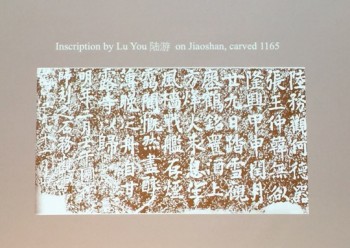 Inscription by Lu You 陸游 on Jiaoshan, carved 1165
陸務觀何德器
張玉仲韓无咎
隆興甲申閏月
廿九日踏雪觀
瘞鶴銘置酒上
方烽火未息望
風檣戰艦在煙
靄間慨然盡醉
薄晚泛舟自甘
露寺以歸
明年二月壬午